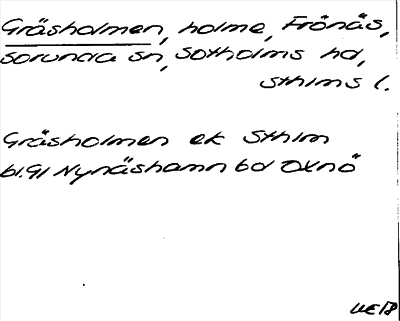 Gräsholmen, holme, Frönäs,
Sorunda sn, Sotholms hd,
Sthlms l.
Gräsholmen ek Sthlm
bl.91 Nynäshamn bd Oxnö